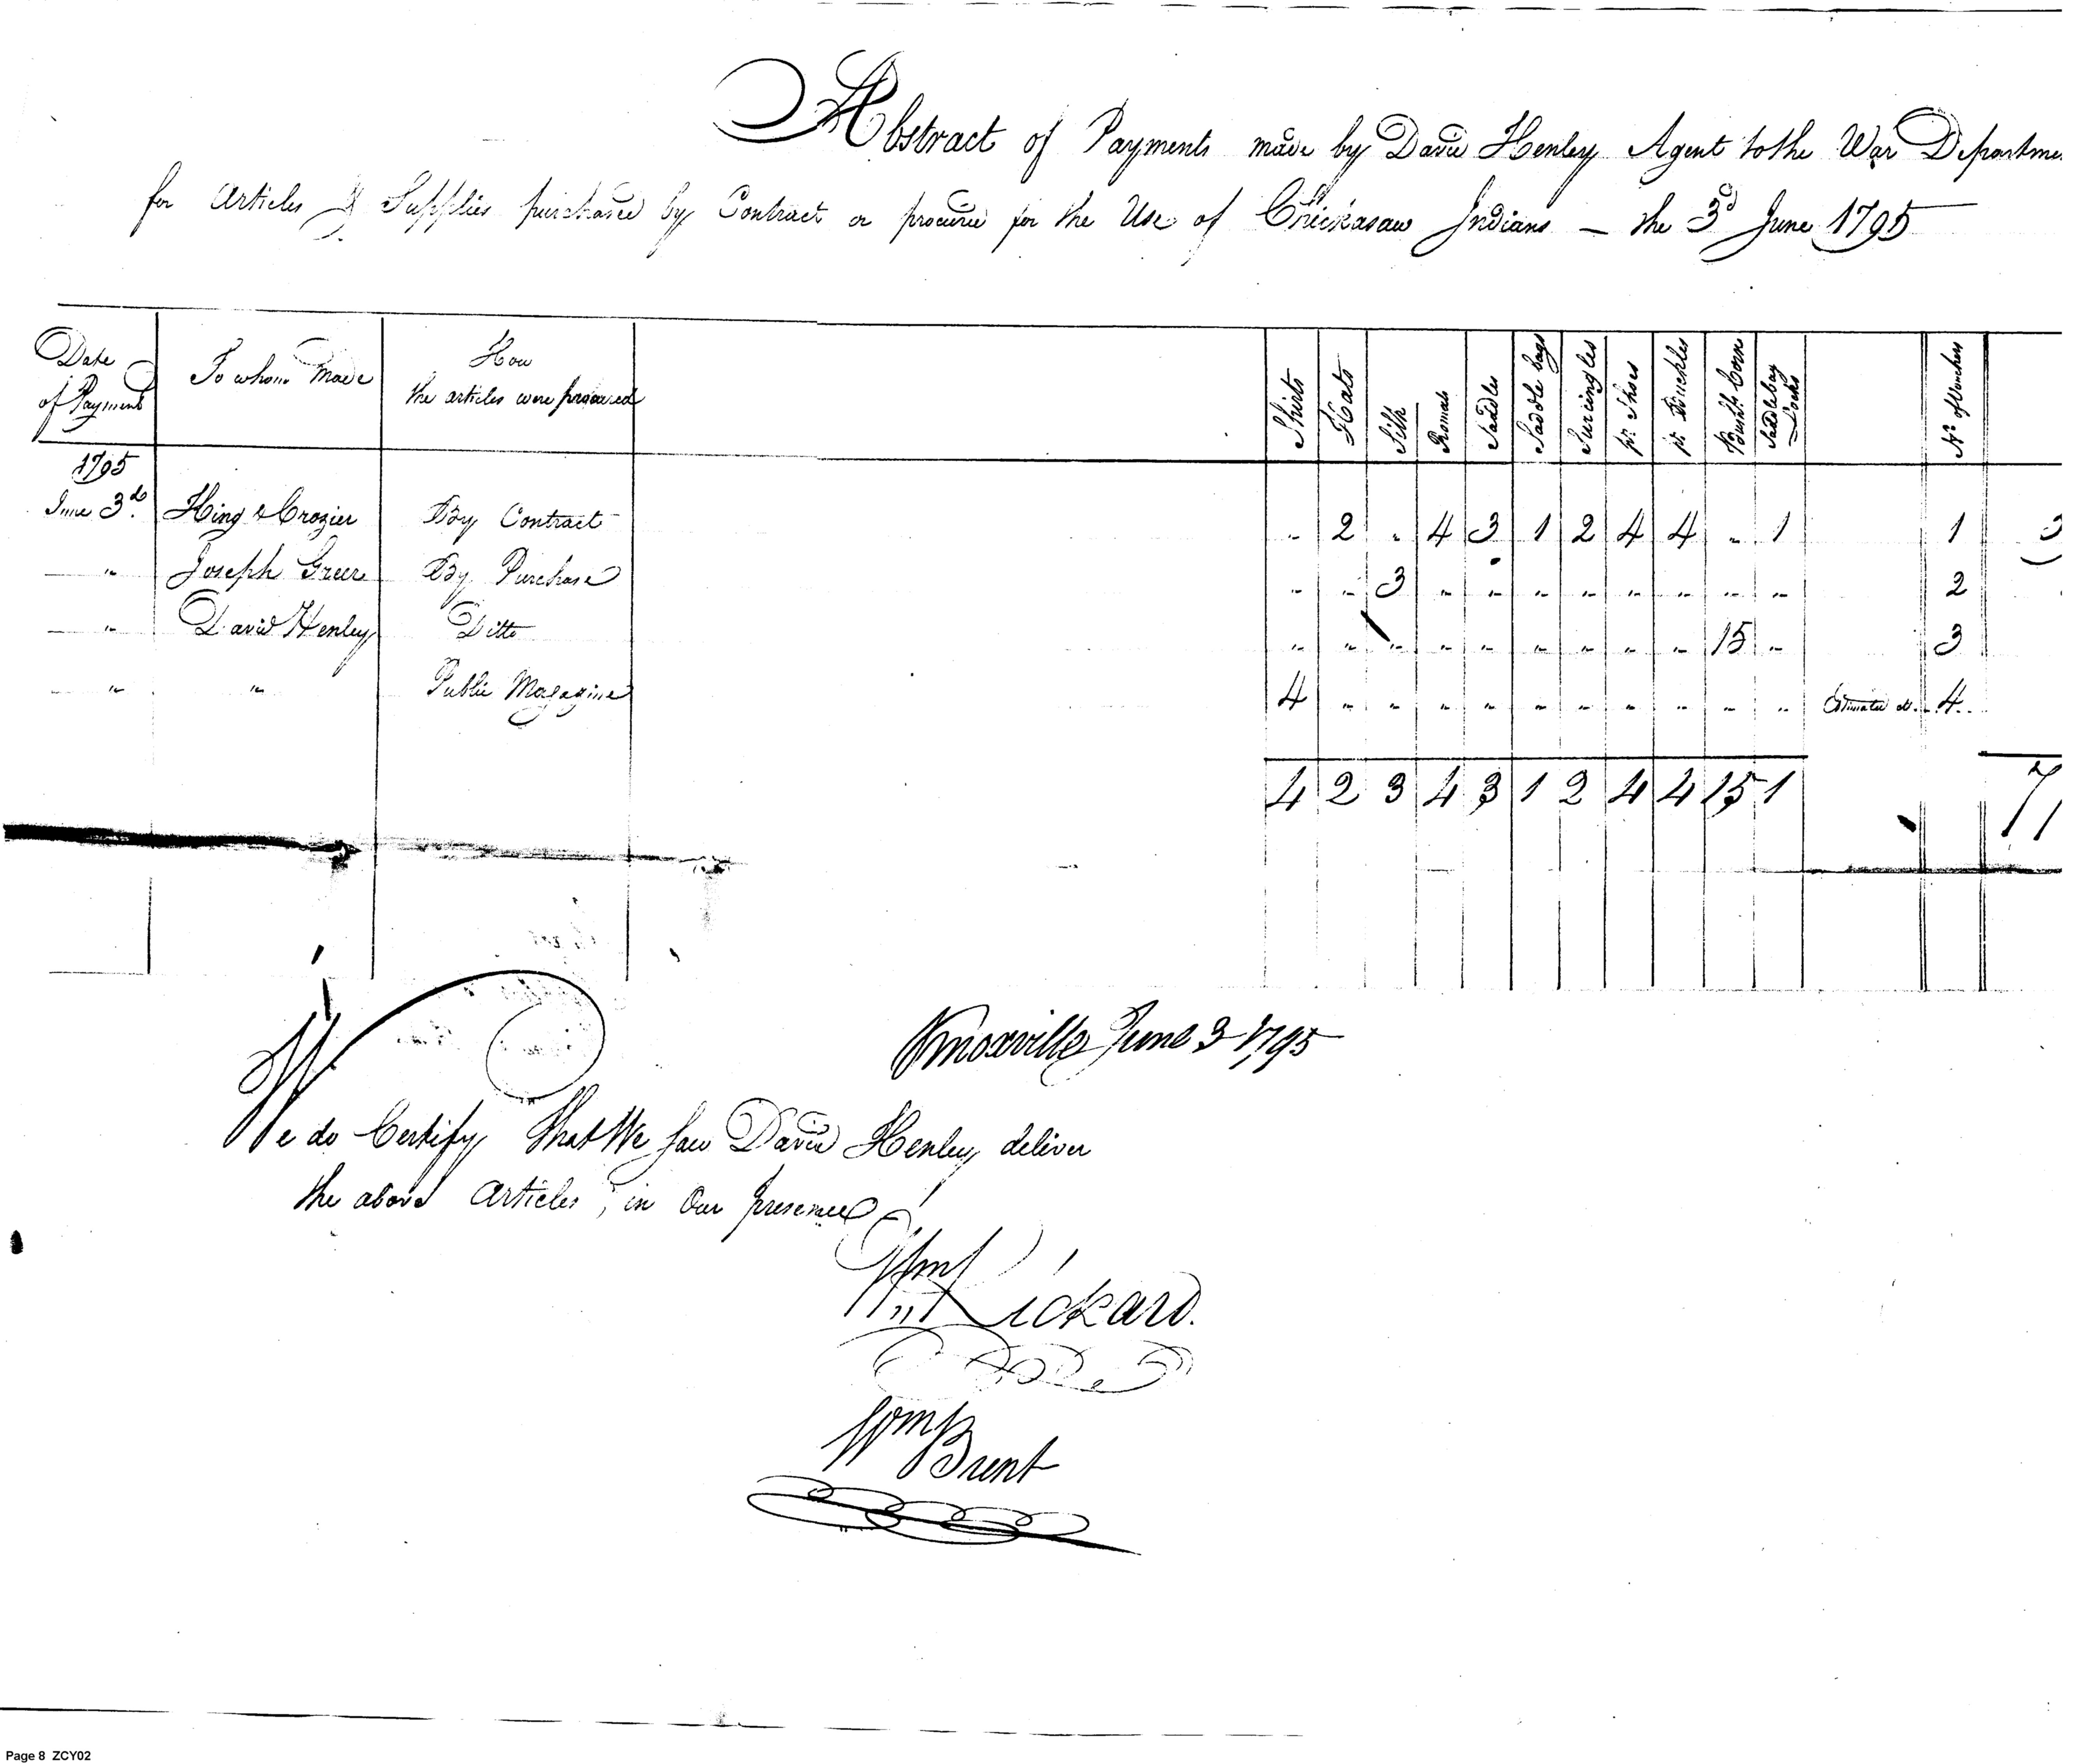 Abstract of Payments made by David Henley Agent to the War Departme
for Articles & Supplies purchased by Contract or procured for the Use of Chickasaw Indians — the 3d June 1795
Date of Payment | To whom Made | How the articles were procured | Shirts | Hats | Silk | Romals | Saddles | Saddle bags | Surcingles | pr. Shoes | pr. Buckles | Bushls Corn | Saddlebag Locks | No. of Vouchers
1795
June 3d. King & Crozier By Contract " 2 " 4 3 1 2 4 4 " 1 1
" Joseph Greer By Purchase " " 3 " " " " " " " " 2
" David Henley Ditto " " " " " " " " " 15 " 3
" " Public Magazine 4 " " " " " " " " " " Estimated at 4
4 2 3 4 3 1 2 4 4 15 1 71
Knoxville June 3 1795
We do Certify that We saw David Henley deliver
the above articles, in Our presence
Wm Rickard.
Wm Brent
Page 8 ZCY02